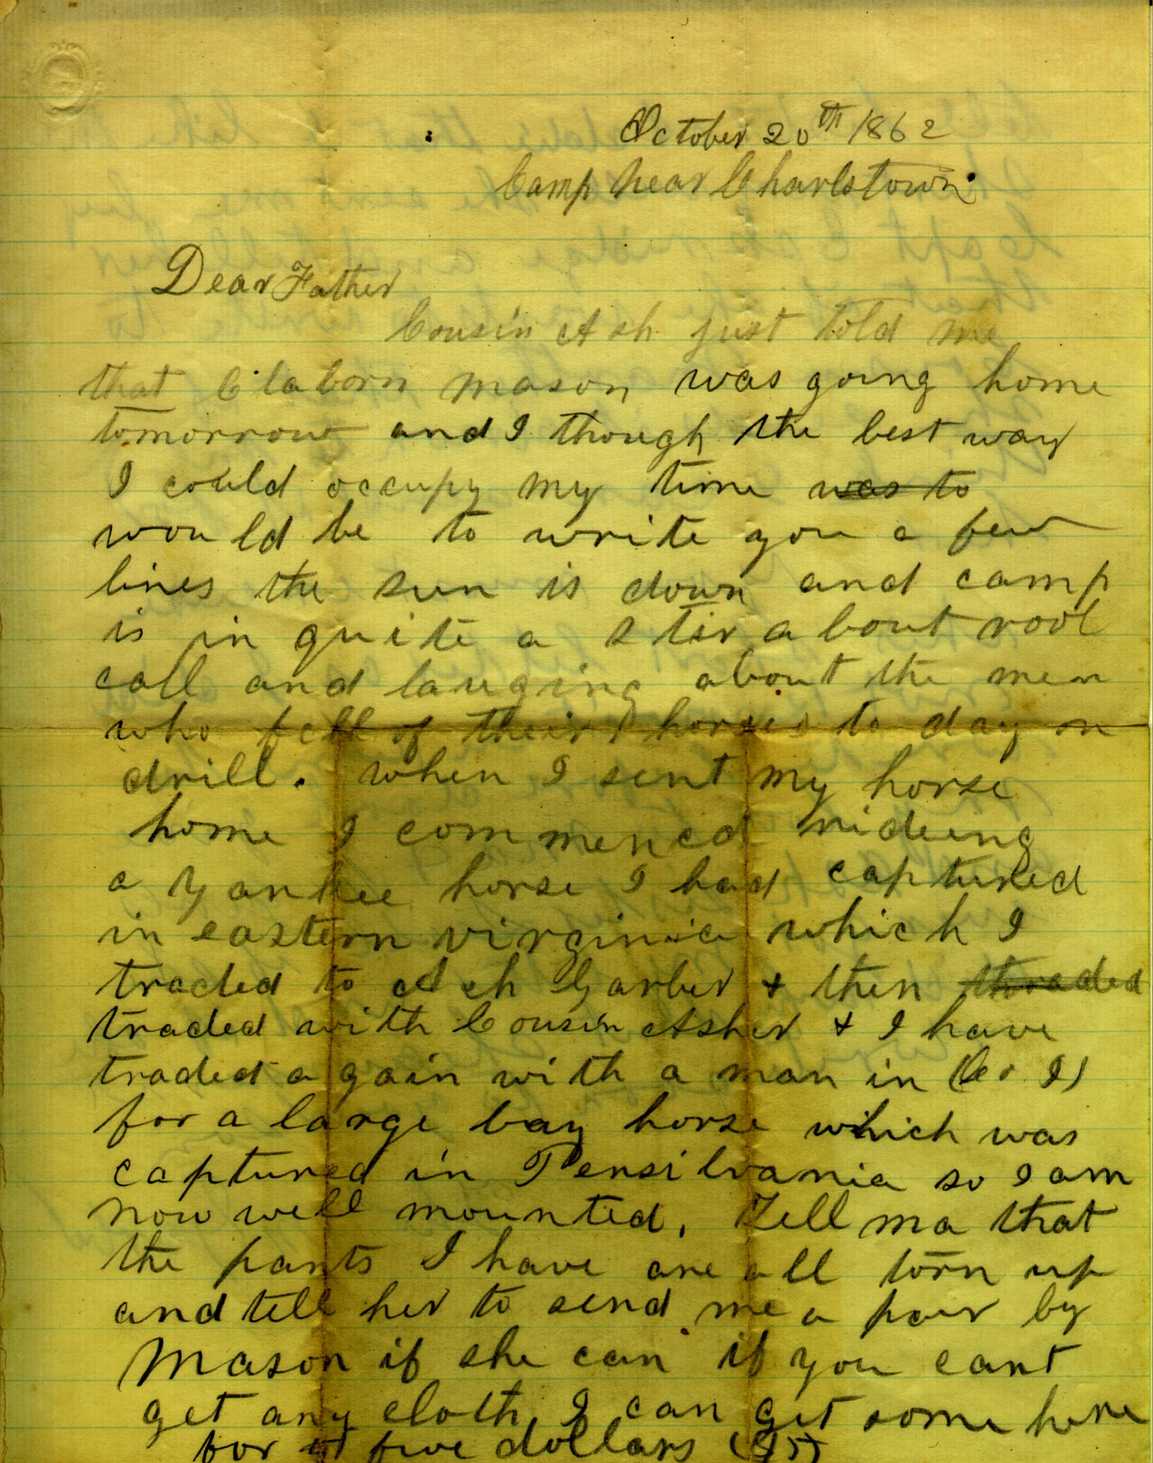 October 20th 1862
Camp near Charlstown.
Dear Father
Cousin Ash just told me
that Claborn Mason was going home
tomorrow and I though the best way
I could occupy my time was to
would be to write you a few
lines the sun is down and camp
is in quite a stir about rool
call and lauging about the men
who fell of their horses to day on
drill. When I sent my horse
home I commenced rideing
a Yankee horse I had captured
in eastern virginia which I
traded to Ash Garber & then thraded
traded with Cousin Asher & I have
traded again with a man in (Co I)
for a large bay horse which was
captured in Pensilvania so I am
now well mounted. Tell ma that
the pants I have are all torn up
and tell her to send me a pair by
Mason if she can if you cant
get any cloth I can get some here
for five dollars ($5)